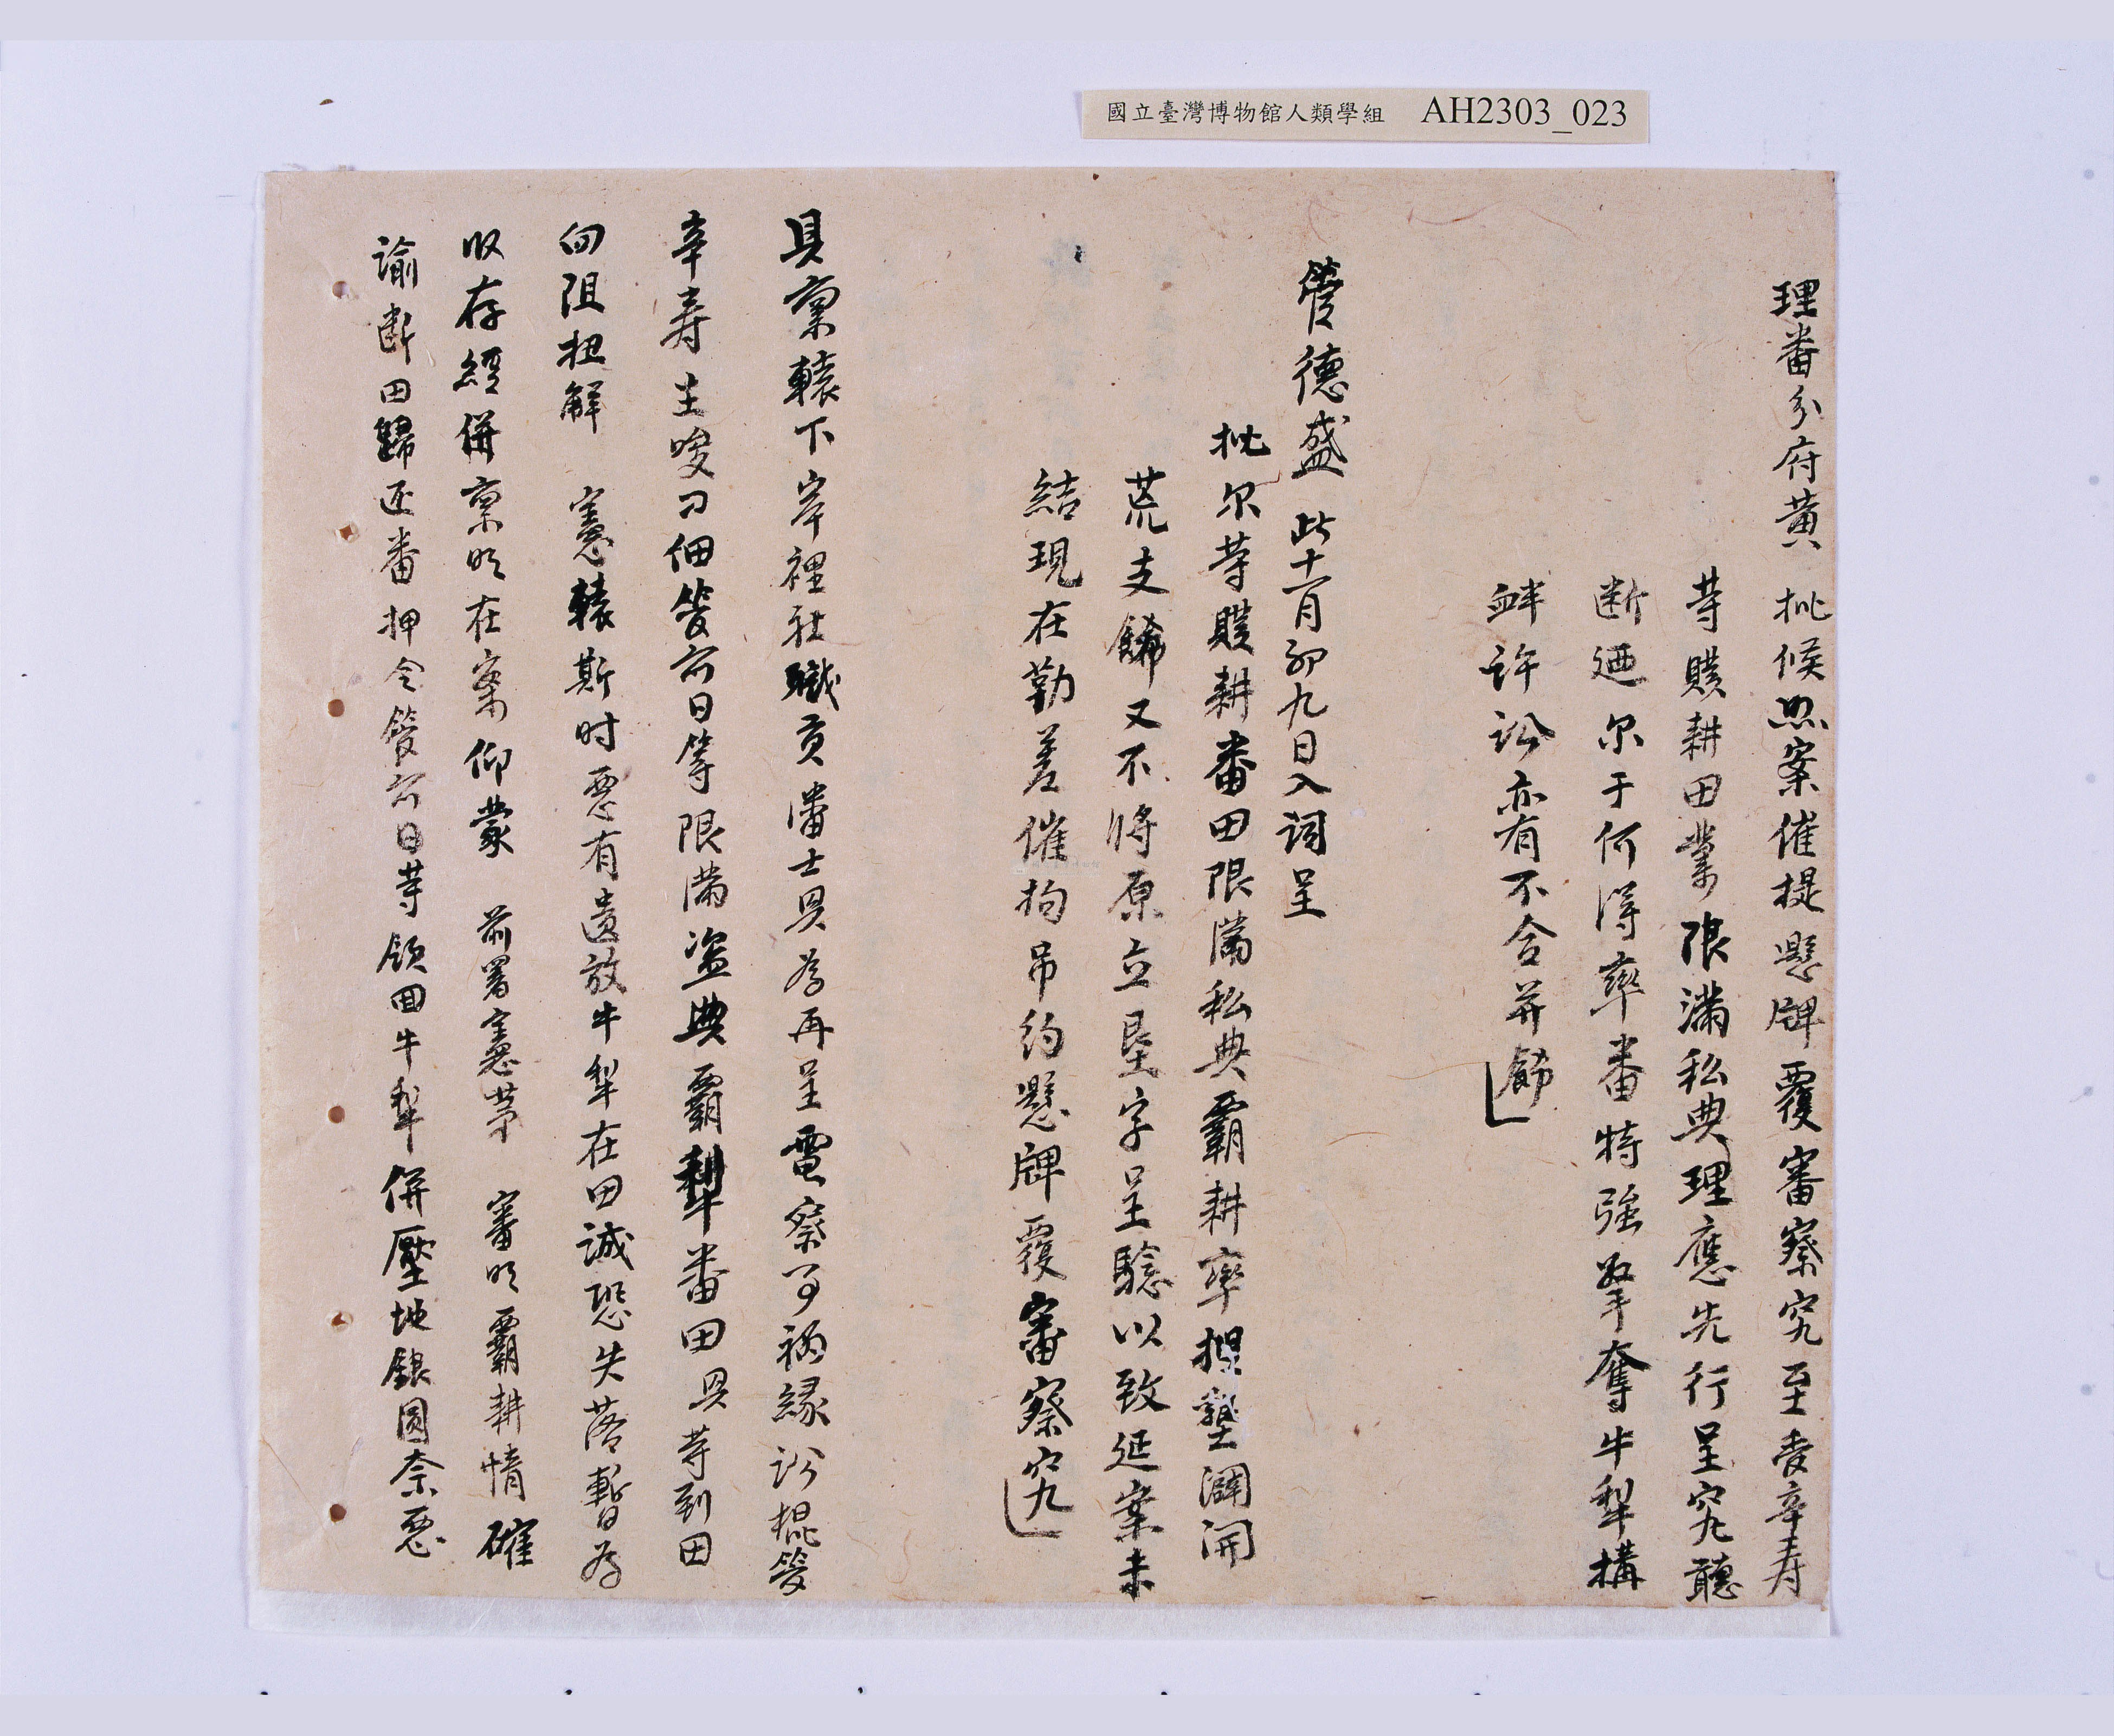 國立臺灣博物館人類學組 AH2303_023
理番分府黃 批候照案催提懸牌覆審察究至委辛寿
䓁贌耕田業限滿私典理應先行呈究聽
断迺尔于何得率番恃強牽奪牛犁構
衅許訟亦有不合并飭
管德盛 此十一月初九日入詞呈
批尔䓁贌耕番田限滿私典霸耕率揑墾闢開
荒支餙又不將原立垦字呈驗以致延案未
結現在勤差催拘吊約懸牌覆審察究
具禀轅下岸裡社職員潘士興為再呈電察事禍縁訟棍管
辛寿主唆刁佃管六日等限滿盗典霸犁番田興䓁到田
向阻扭解 憲轅斯时惡有遺放牛犁在田誠恐失落暫為
收存經併禀明在案仰蒙 前署憲䓁 審明霸耕情確
諭断田歸还番押令管六日䓁領回牛犁併壓地銀圓奈惡